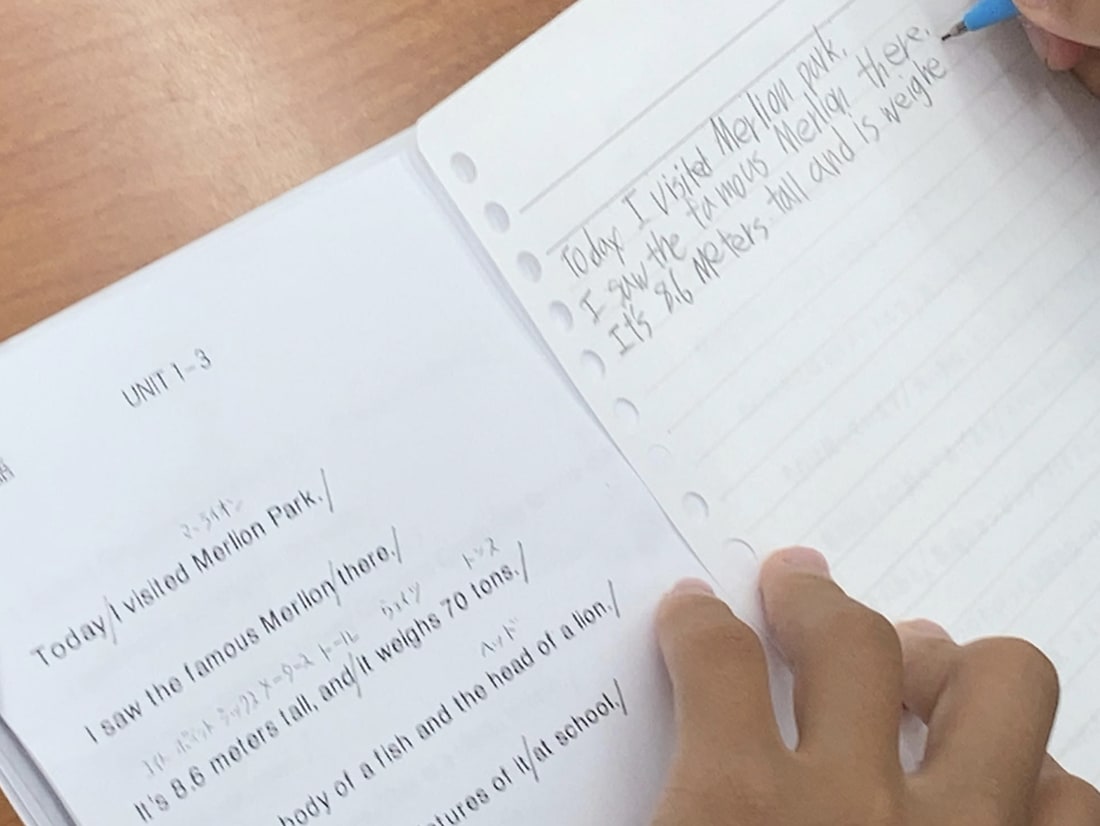 UNIT 1-3
マーライオン
Today/I visited Merlion Park./
I saw the famous Merlion/there./
エイト ポイント シックス メーターズ トール
トンス
It's 8.6 meters tall, and/it weighs 70 tons./
ヘッド
body of a fish and the head of a lion./
of it/at school./
Today I visited Merlion park.
I saw the famous Merlion there.
It's 8.6 meters tall and is weighe